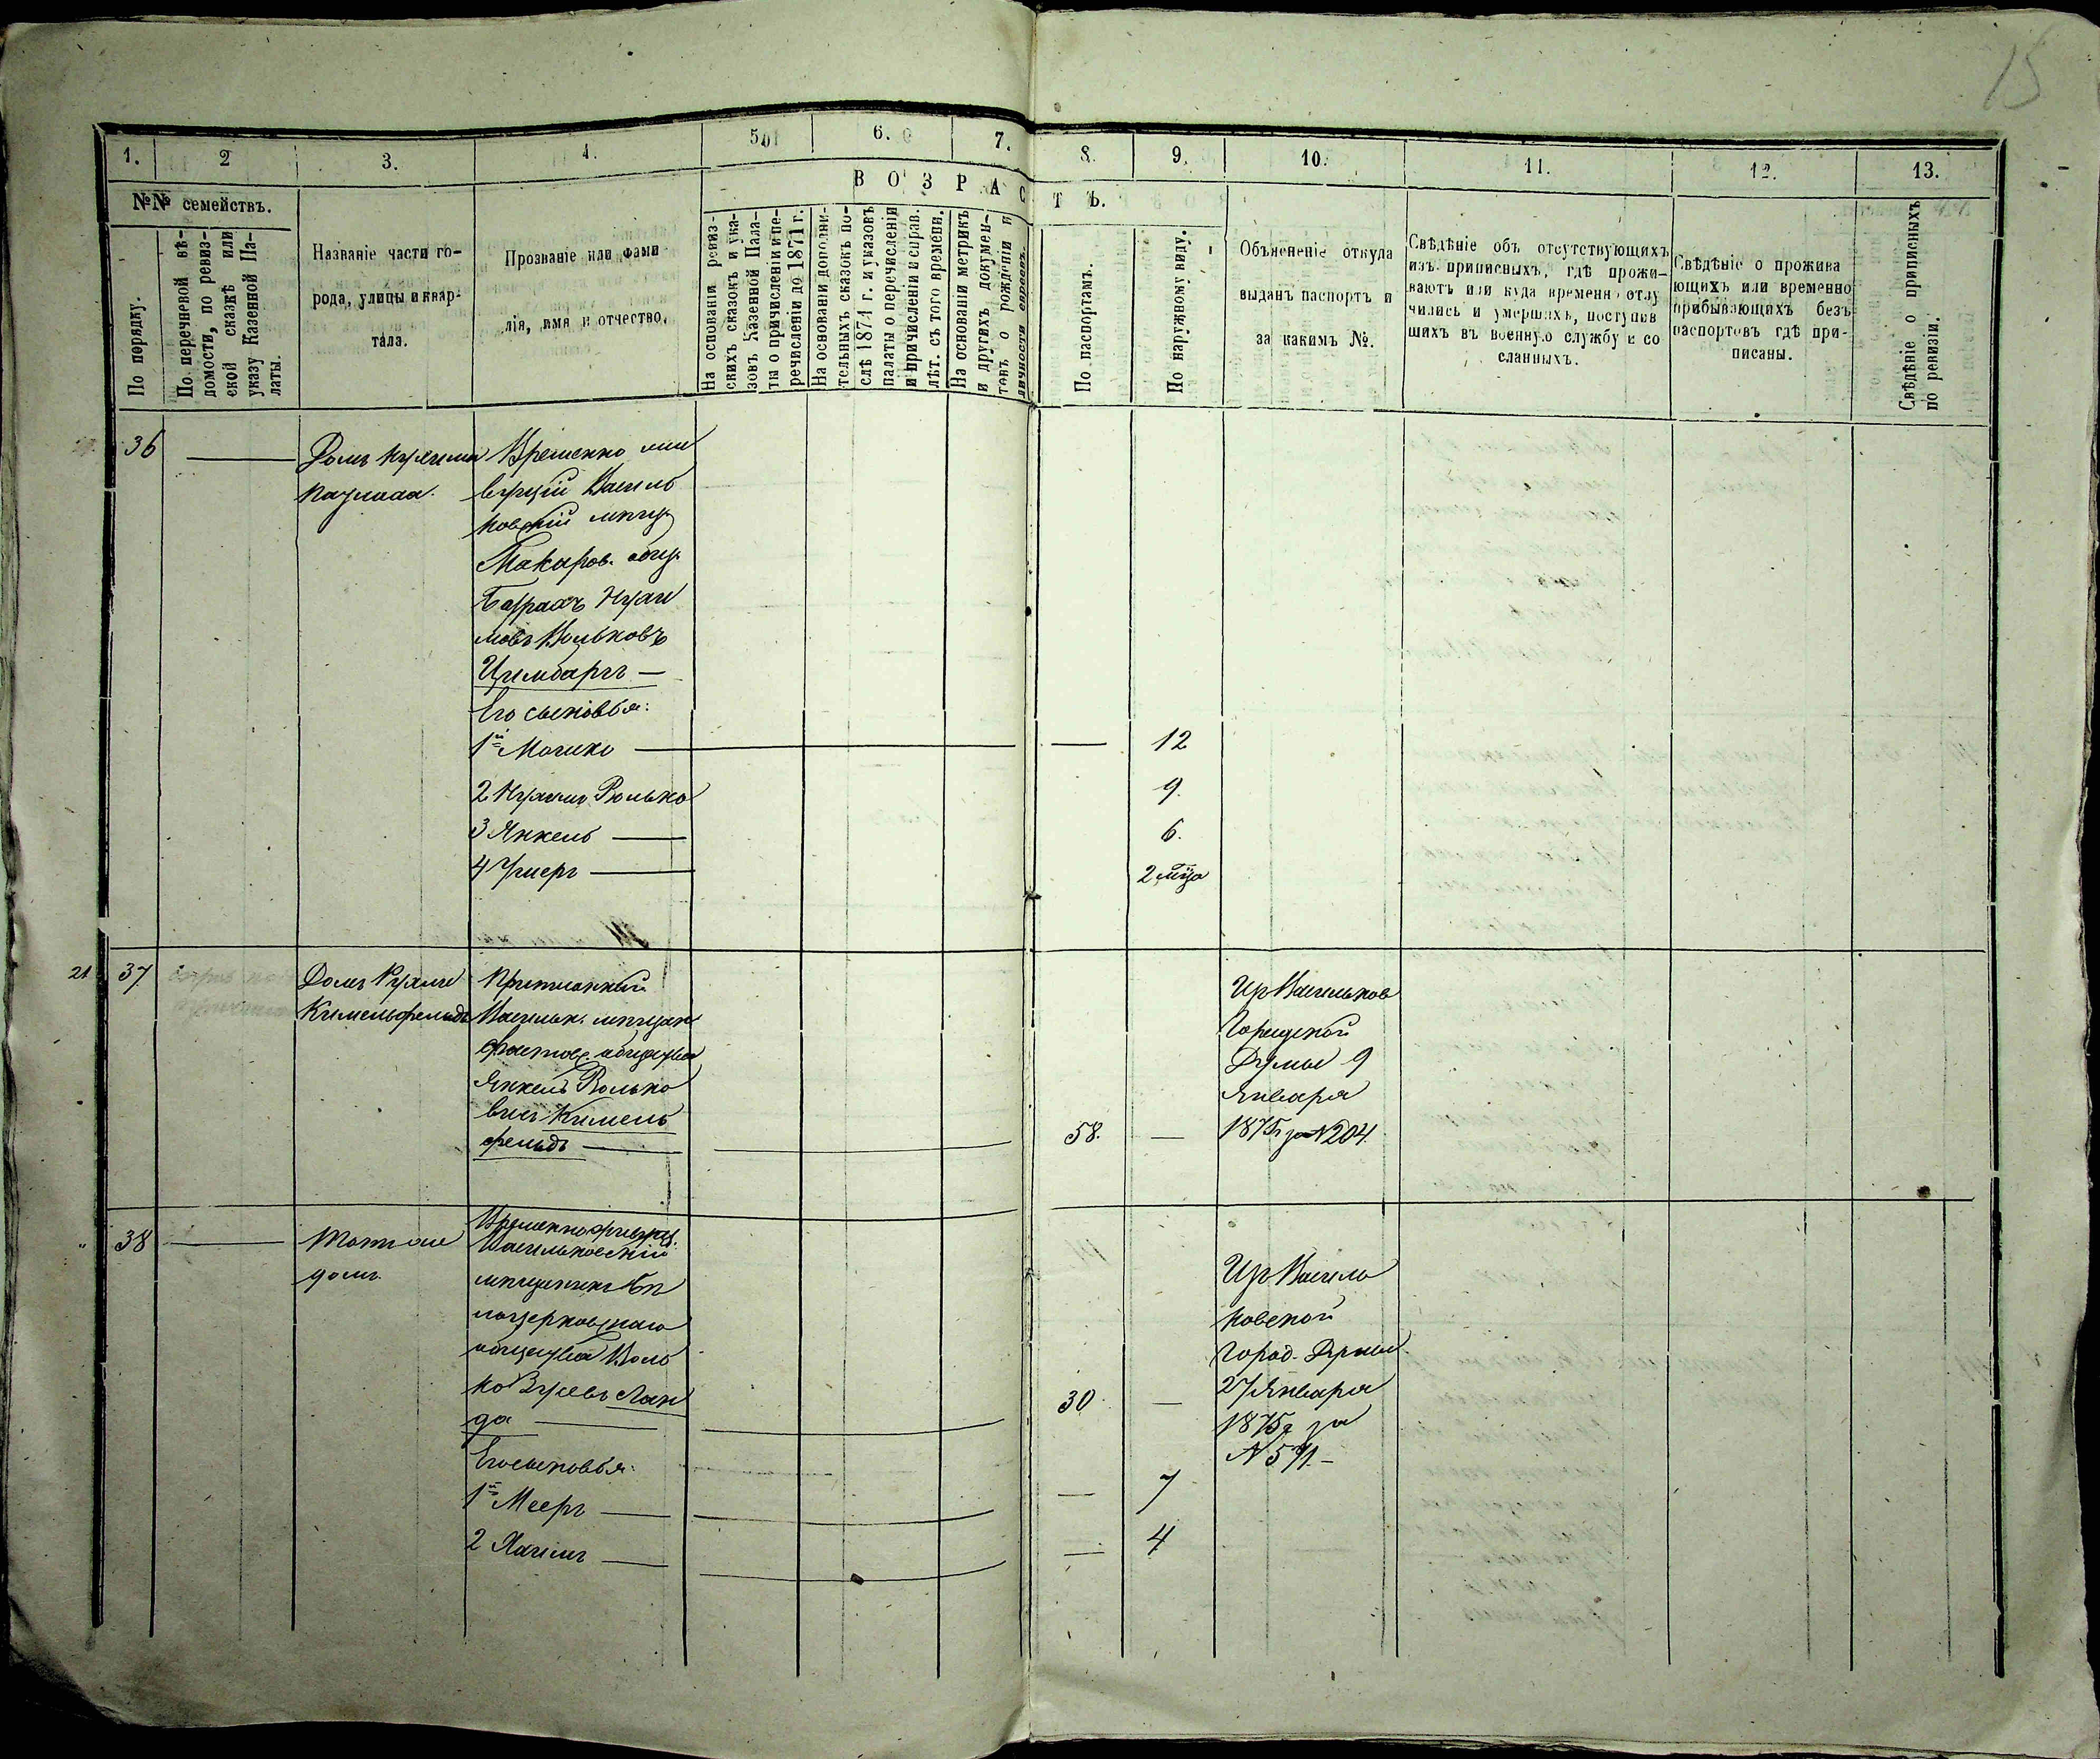 15
1.
2
3.
4.
5
6.
7.
8.
9.
10.
11.
12.
13.
В О З Р А С Т Ъ.
№№ семействъ.
По порядку.
По перечневой вѣ-
домости, по ревиз-
ской сказкѣ или
указу Казенной Па-
латы.
Названіе части го-
рода, улицы и квар-
тала.
Прозваніе или фами
лія, имя и отчество.
На основаніи ревиз-
скихъ сказокъ и ука-
зовъ Казенной Пала-
ты о причисленіи и пе-
речисленіи до 1871 г.
На основаніи дополни-
тельныхъ сказокъ по-
слѣ 1874 г. и указовъ
палаты о перечисленіи
и причисленіи и справ.
лѣт. съ того времени.
На основаніи метрикъ
и другихъ докумен-
товъ о рожденіи и
личности евреевъ.
По паспортамъ.
По наружному виду.
Объясненіе откуда
выданъ паспортъ и
за какимъ №.
Свѣдѣніе объ отсутствующихъ
изъ приписныхъ, гдѣ прожи-
ваютъ или куда временно отлу
чились и умершихъ, поступив
шихъ въ военную службу и со
сланныхъ.
Свѣдѣніе о прожива
ющихъ или временно
прибывающихъ безъ
паспортовъ гдѣ при-
писаны.
Свѣдѣніе о приписныхъ
по ревизіи.
36
Домъ
Временно
Василь
ковскій мѣщ.
Макаров. общ.
Вольковъ
Цимбаргъ —
Его сыновья:
1й Мошко — — 12
2 Волько 9.
3 Янкель — 6.
4 Ушеръ — 2 м̃ца
21 37
Домъ
Кимельфельдъ
Василък. мѣщан
Фастов. общества
Янкель Волько
вичъ Кимель
фельдъ — 58. —
Изъ Васильков
Городской
Думы 9
Января
1875г за №204.
38
Тотъ же
домъ.
Васильковскій
мѣщанинъ Бѣ
лоцерковскаго
общества Воль
ко Лан
да — 30 —
Изъ Василь
ковской
Город. Думы
27 Января
1875г за
№571. —
Его сыновья:
1й Мееръ — — 7
2 Хаимъ — — 4